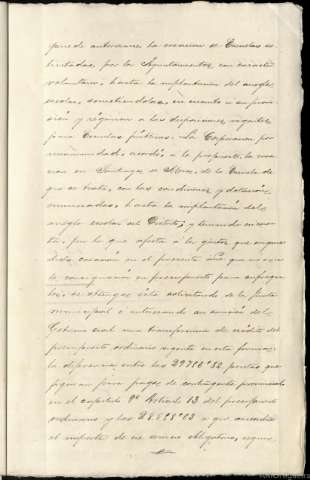 puede autorizarse la creación de Escuelas so-
licitadas, por los Ayuntamientos, con carácter
voluntario, hasta la implantación del arreglo
escolar, sometiéndolas, en cuanto a su provi-
sión y régimen a las disposiciones vigentes
para Escuelas públicas. La Corporación por
unanimidad, acordó, a lo propuesto, la crea-
ción en Santiago de Abres, de la Escuela de
que se trata, con las condiciones y dotación
enunciadas, hasta la implantación del
arreglo escolar del Distrito; y teniendo en cuen-
ta, por lo que afecta a los gastos que origine
dicha creación en el presente año que no existe
la consignación en presupuesto para sufragar-
los, se obtenga ésta solicitando de la Junta
municipal o interesando su sanción del
Gobierno civil una transferencia de crédito del
presupuesto ordinario vigente en esta forma:
la diferencia entre las 29798'52 pesetas que
figuran para pago de contingente provincial
en el capítulo 9º Artículo 13 del presupuesto
ordinario y las 28898'03 a que asciende
el importe de ese servicio obligatorio, según